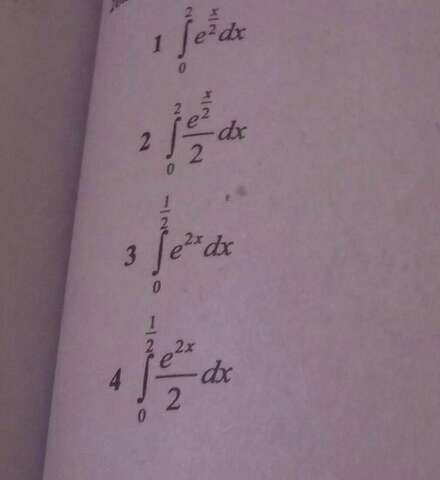 1 ∫₀² e^{x/2} dx
2 ∫₀² \frac{e^{x/2}}{2} dx
3 ∫₀^{1/2} e^{2x} dx
4 ∫₀^{1/2} \frac{e^{2x}}{2} dx